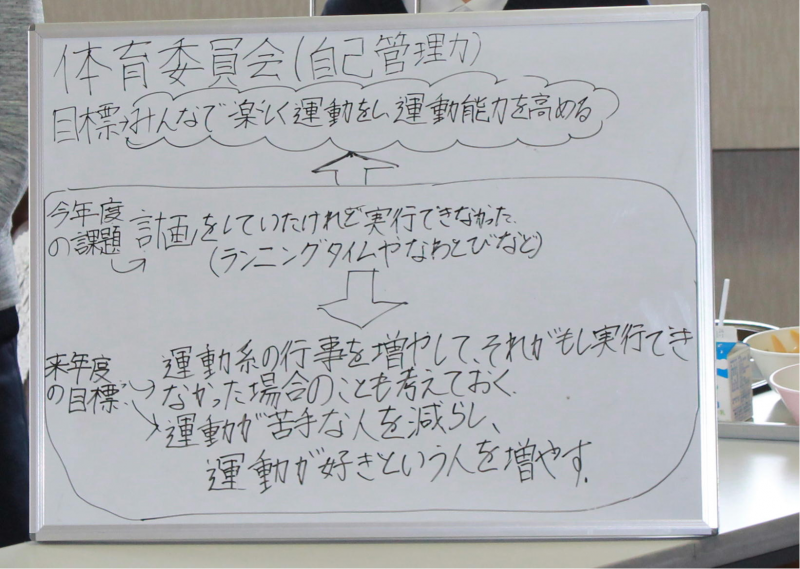 体育委員会(自己管理力)
目標→みんなで楽しく運動をし運動能力を高める
今年度の課題
計画をしていたけれど実行できなかった
(ランニングタイムやなわとびなど)
来年度の目標
運動系の行事を増やして、それがもし実行でき
なかった場合のことも考えておく.
運動が苦手な人を減らし、
運動が好きという人を増やす.